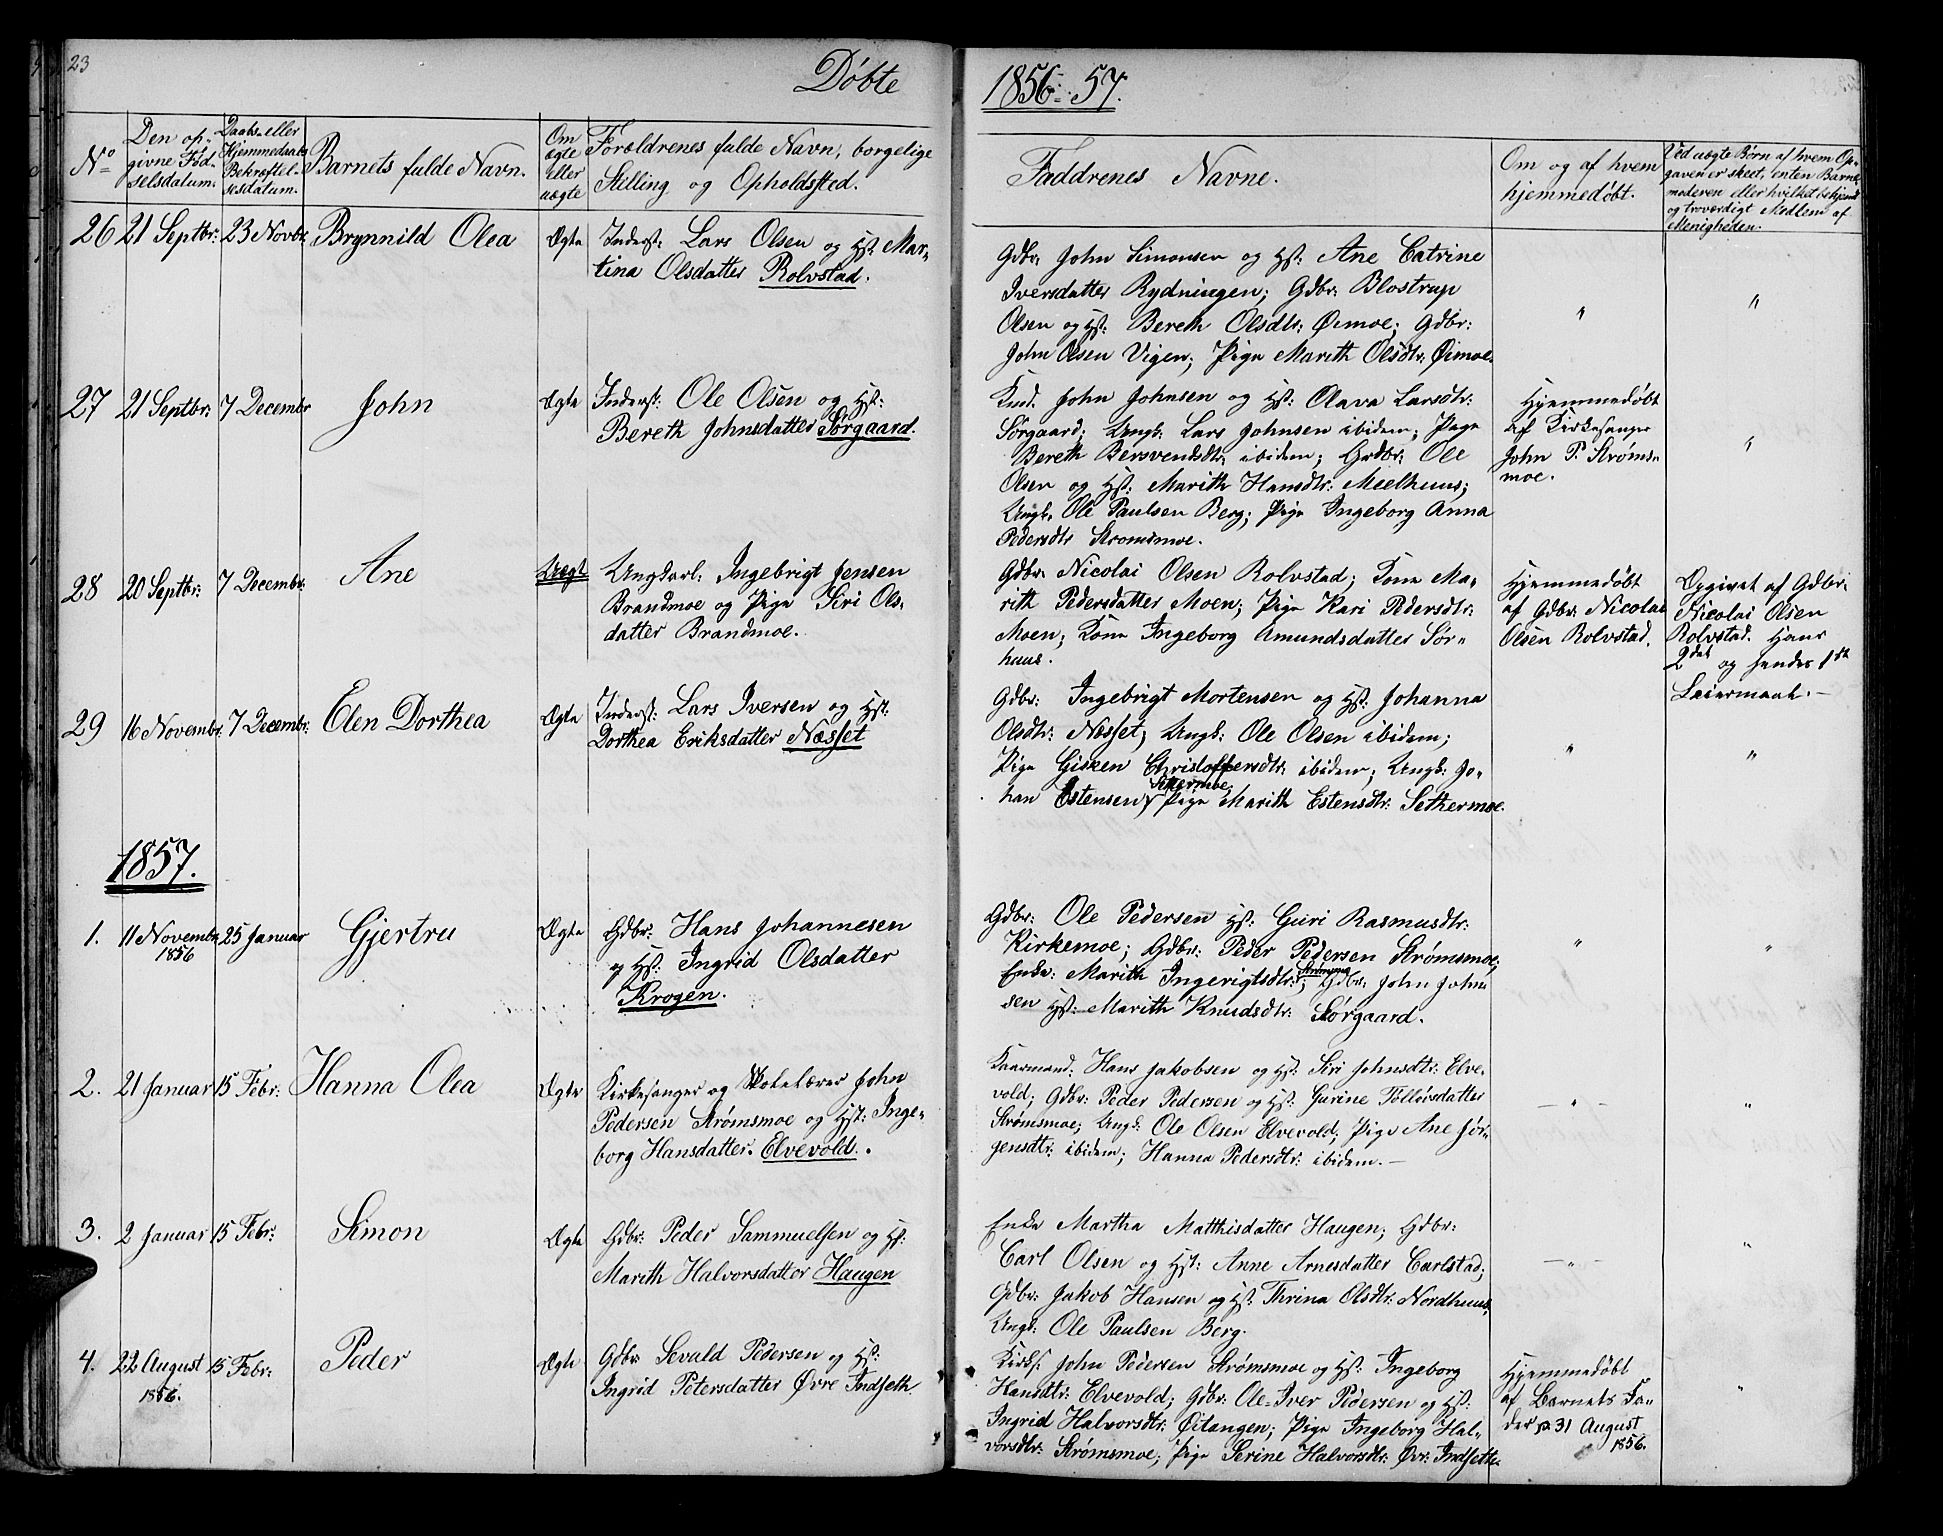 23
Døbte
1856-57.
No
Den op-
givne Fød-
selsdatum.
Daabs- eller
Hjemmedaabs
Bekræftel-
sesdatum.
Barnets fulde Navn.
Om
ægte
eller
uægte
Forældrenes fulde Navn, borgelige
Stilling og Opholdsted.
Faddrenes Navne.
Om og af hvem
hjemmedøbt.
Ved uægte Børn af hvem Op-
gaven er skeet, enten Barne-
moderen eller hvilket bekjendt
og troværdigt Medlem af
Menigheden.
26 21 Septbr: 23 Novbr. Brynnild Olea Ægte
Inderst: Lars Olsen og Hst: Mar-
tina Olsdatter Rolvstad.
Gdbr: John Simonsen og Hst: Ane Catrine
Iversdatter Rydningen; Gdbr: Blostrup
Olsen og Hst: Bereth Olsdtr: Øimoe; Gdbr:
John Olsen Vigen; Pige Marith Olsdtr: Øimoe.
"
"
27 21 Septbr: 7 Decembr John Ægte
Inderst: Ole Olsen og Hst:
Bereth Johnsdatter Sørgaard.
John Johnsen og Hst: Olava Larsdtr:
Sørgaard; Ungk: Lars Johnsen ibidem; Pige
Bereth Bersvendsdtr: ibidem; Gdbr: Ole
Olsen og Hst: Marith Hansdtr: Meelhuus;
Ungk. Ole Paulsen Berg; Pige Ingeborg Anna
Pedersdtr Strømsmoe.
Hjemmedøbt
af Kirkesanger
John P. Strøms-
moe.
"
28 20 Septbr: 7 Decembr: Ane Uægt
Ungkarl: Ingebrigt Jensen
Brandmoe og Pige Siri Ols-
datter Brandmoe.
Gdbr: Nicolai Olsen Rolvstad; Kone Ma-
rith Pedersdatter Moen; Pige Kari Pedersdtr:
Moen; Kone Ingeborg Amundsdatter Sør-
huus.
Hjemmedøbt
af Gdbr: Nicolai
Olsen Rolvstad.
Opgivet af Gdbr:
Nicolai Olsen
Rolvstad. Hans
2det og hendes 1ste
Leiermaal.
29 16 Novembr: 7 Decembr: Elen Dorthea Ægte
Inderst: Lars Iversen og Hst:
Dorthea Eriksdatter Næsset
Gdbr: Ingebrigt Mortensen og Hst: Johanna
Olsdtr: Næsset; Ungk: Ole Olsen ibidem;
Pige Gisken Christoffersdtr: ibidem; Ungk: Jo-
Setermoe;
han Estensen, Pige Marith Estensdtr: Sethermoe.
"
"
1857.
1. 11 Novembr 25 Januar Gjertru Ægte
1856
Gdbr: Hans Johannesen
og Hst: Ingrid Olsdatter
Krogen.
Gdbr: Ole Pedersen Hst: Guri Rasmusdtr:
Kirkemoe; Gdbr: Peder Pedersen Strømsmoe;
Enke: Marith Ingerigtsdtr: Gdbr: John John
sen Hst: Marith Knudsdtr: Sørgaard.
"
"
2. 21 Januar 15 Febr: Hanna Olea Ægte
Kirkesanger og Skolelærer John
Pedersen Strømsmoe og Hst: Inge-
borg Hansdatter. Elvevold.
Kaarmand: Hans Jakobsen og Hst: Siri Johnsdtr: Elve-
vold; Gdbr: Peder Pedersen og Hst: Gurine Tollevsdatter
Strømsmoe; Ungk: Ole Olsen Elvevold; Pige Ane Jør-
gensdtr: ibidem; Hanna Pedersdtr: ibidem.
"
"
3. 2 Januar 15 Febr: Simon Ægte
Gdbr: Peder Sammuelsen og Hst:
Marith Halvorsdatter Haugen
Enke Martha Matthisdatter Haugen; Gdbr:
Carl Olsen og Hst: Anne Arnesdatter Carlstad;
Gdbr: Jakob Hansen og Hst: Thrina Olsdtr: Nordhuus,
Ungk: Ole Paulsen Berg.
"
"
4. 22 August 15 Febr: Peder Ægte
1856.
Gdbr Sevald Pedersen og Hst:
Ingrid Petersdatter Øvre Indseth.
Kirks. John Pedersen Strømsmoe og Hst: Ingeborg
Hansdtr: Elvevold; Gdbr: Ole-Iver Pedersen og Hst:
Ingrid Halvorsdtr: Øitangen; Pige Ingeborg Hal-
vorsdtr: Strømsmoe; Pige Serine Halvorsdtr: Øvr: Indseth.
Hjemmedøbt
af Barnets Fa-
der 31 August
1856.
"